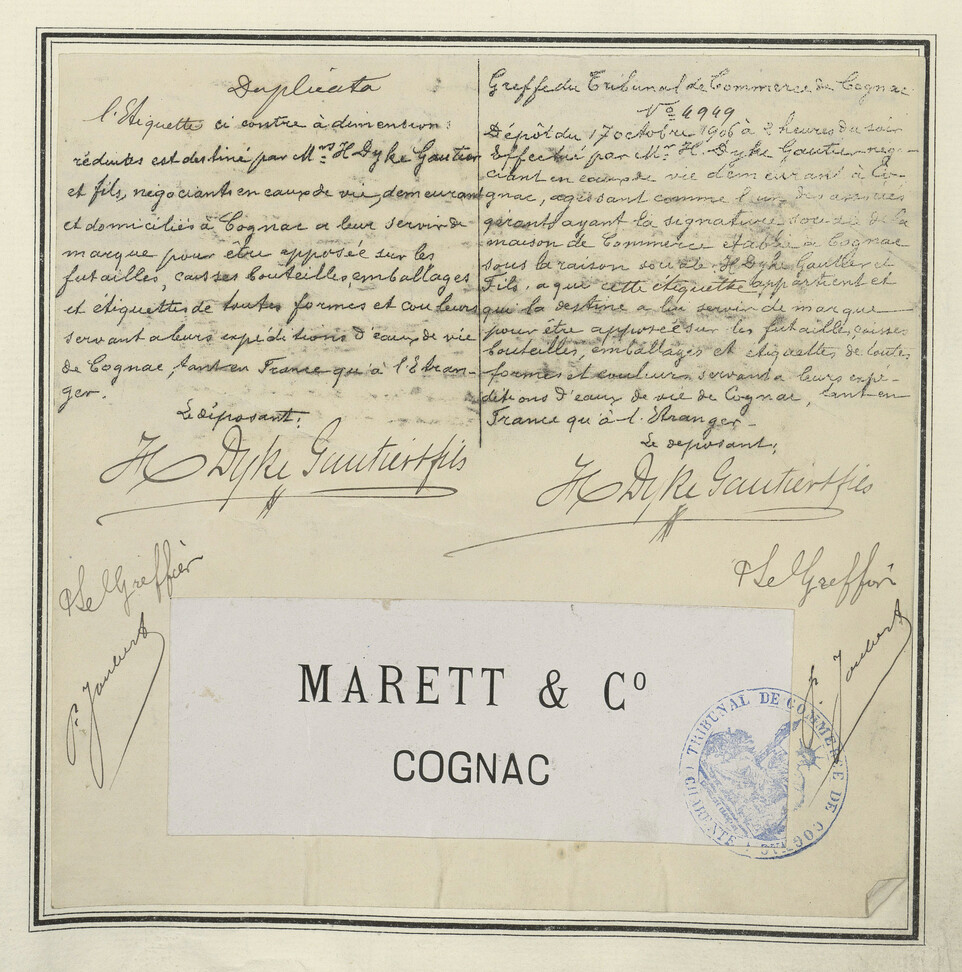 Duplicata
l'Etiquette ci contre à dimensions
réduites est destiné par Mrs H Dyke Gautier
et fils, négociants en eaux de vie, demeurant
et domiciliés à Cognac a leur servir de
marque pour être apposée sur les
futailles, caisses bouteilles, emballages
et étiquettes de toutes formes et couleurs
servant a leurs expéditions d'eaux de vie
de Cognac, tant en France qu'à l'Etran-
ger.
Le déposant,
H Dyke Gautier & fils
Le Greffier
Joubert
Greffe du Tribunal de Commerce de Cognac
No 4949
Dépôt du 17 octobre 1906 à 2 heures du soir
Effectué par Mr H. Dyke Gautier négo-
ciant en eaux de vie demeurant à Co-
gnac, agissant comme l'un des associés
gérants ayant la signature sociale de la
maison de Commerce établie à Cognac
sous la raison sociale H Dyke Gautier et
Fils. a qui cette étiquette appartient et
qui la destine a lui servir de marque
pour être apposée sur les futailles, caisses
bouteilles, emballages et étiquettes de toutes
formes et couleurs servant a leurs expé-
ditions d'eaux de vie de Cognac, tant en
France qu'à l'Etranger_
Le deposant,
H Dyke Gautier & fils
Le Greffier
Joubert
MARETT & Co
COGNAC
TRIBUNAL DE COMMERCE DE COGNAC
(CHARENTE)